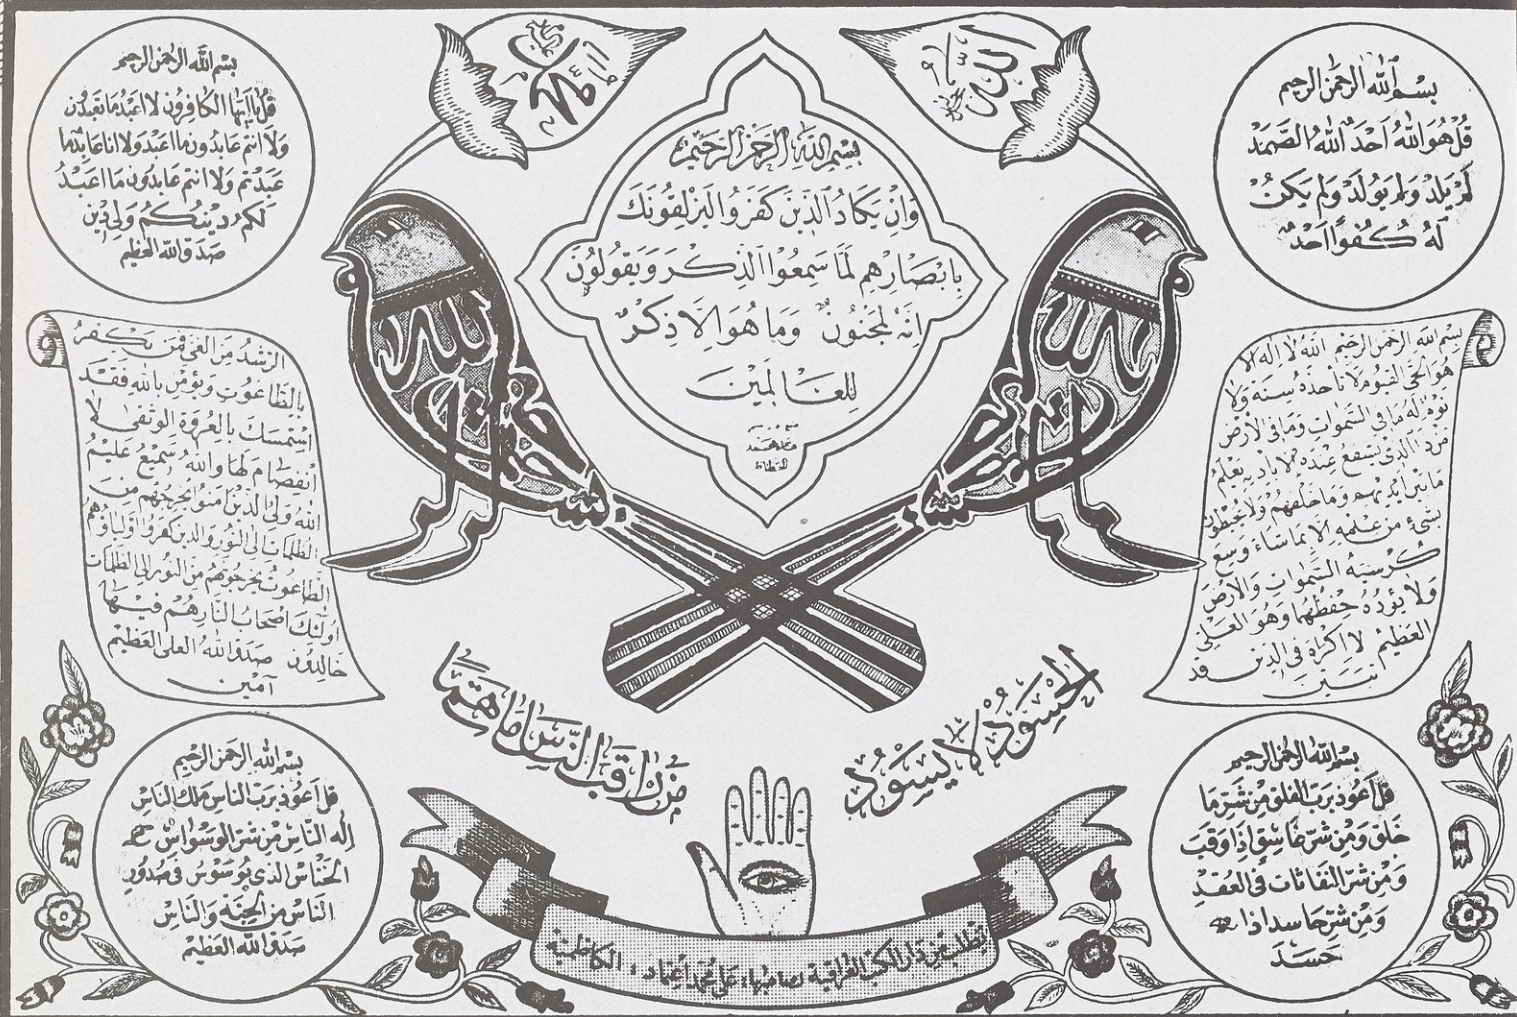 الله
محمد
بسم الله الرحمن الرحيم
قل هو الله احد الله الصمد
لم يلد ولم يولد ولم يكن
له كفوا احد
بسم الله الرحمن الرحيم
قل يا ايها الكافرون لا اعبد ما تعبدون
ولا انتم عابدون ما اعبد ولا انا عابد ما
عبدتم ولا انتم عابدون ما اعبد
لكم دينكم ولي دين
صدق الله العظيم
بسم الله الرحمن الرحيم
وان يكاد الذين كفروا ليزلقونك
بابصارهم لما سمعوا الذكر ويقولون
انه لمجنون وما هو الا ذكر
للعالمين
بسم الله الرحمن الرحيم الله لا اله الا
هو الحي القيوم لا تاخذه سنة ولا
نوم له ما في السموات وما في الارض
من ذا الذي يشفع عنده الا باذنه يعلم
ما بين ايديهم وما خلفهم ولا يحيطون
بشيء من علمه الا بما شاء وسع
كرسيه السموات والارض
ولا يؤده حفظهما وهو العلي
العظيم لا اكراه في الدين قد
تبين
الرشد من الغي فمن يكفر
بالطاغوت ويؤمن بالله فقد
استمسك بالعروة الوثقى لا
انفصام لها والله سميع عليم
الله ولي الذين امنوا يخرجهم من
الظلمات الى النور والذين كفروا اولياؤهم
الطاغوت يخرجونهم من النور الى الظلمات
اولئك اصحاب النار هم فيها
خالدون صدق الله العلي العظيم
آمين
الحسود لا يسود
من راقب الناس مات هما
بسم الله الرحمن الرحيم
قل اعوذ برب الفلق من شر ما
خلق ومن شر غاسق اذا وقب
ومن شر النفاثات في العقد
ومن شر حاسد اذا
حسد
بسم الله الرحمن الرحيم
قل اعوذ برب الناس ملك الناس
اله الناس من شر الوسواس
الخناس الذي يوسوس في صدور
الناس من الجنة والناس
صدق الله العظيم
تطلب من دار الكتب العراقية لصاحبها: علي محمد اعتماد، الكاظمية